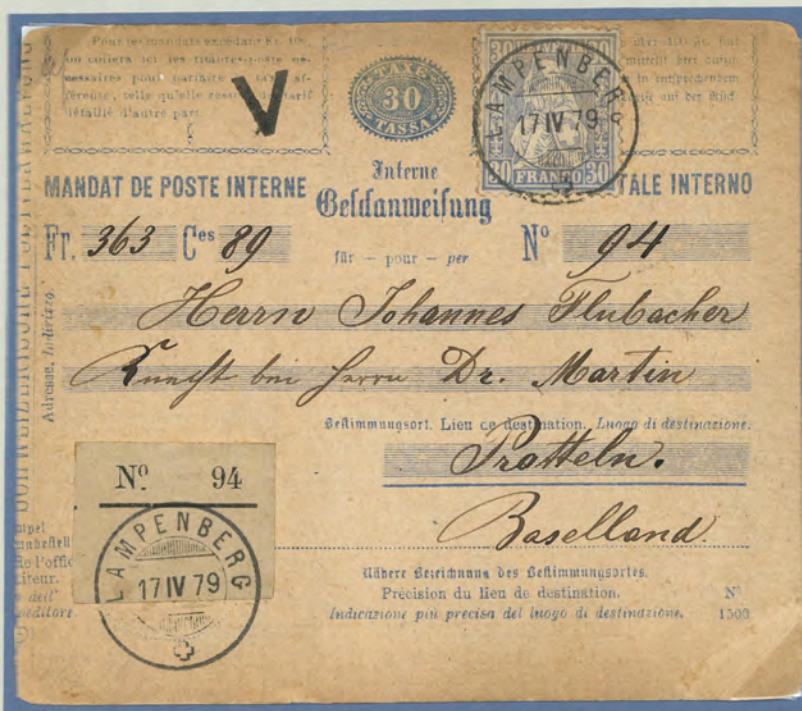 Pour les mandats excédant Fr. 100,
on collera ici les timbres-poste né-
cessaires pour parfaire la taxe af-
férente, telle qu'elle ressort du tarif
détaillé d'autre part.
V
TAXE
30
TASSA
30 HELVETIA 30
30 FRANCO 30
LAMPENBERG
17 IV 79
über 100 Fr. hat
in entsprechendem
auf der Rück-
MANDAT DE POSTE INTERNE
Interne
Geldanweisung
TALE INTERNO
Fr. 363 Ces 89
für – pour – per
No 94
Herrn Johannes Flubacher
Knecht bei Herrn Dr. Martin
Adresse. Indirizzo.
Bestimmungsort. Lieu de destination. Luogo di destinazione.
Pratteln.
Baselland.
No 94
LAMPENBERG
17 IV 79
Nähere Bezeichnung des Bestimmungsortes.
Précision du lieu de destination.
Indicazione più precisa del luogo di destinazione.
No
1500